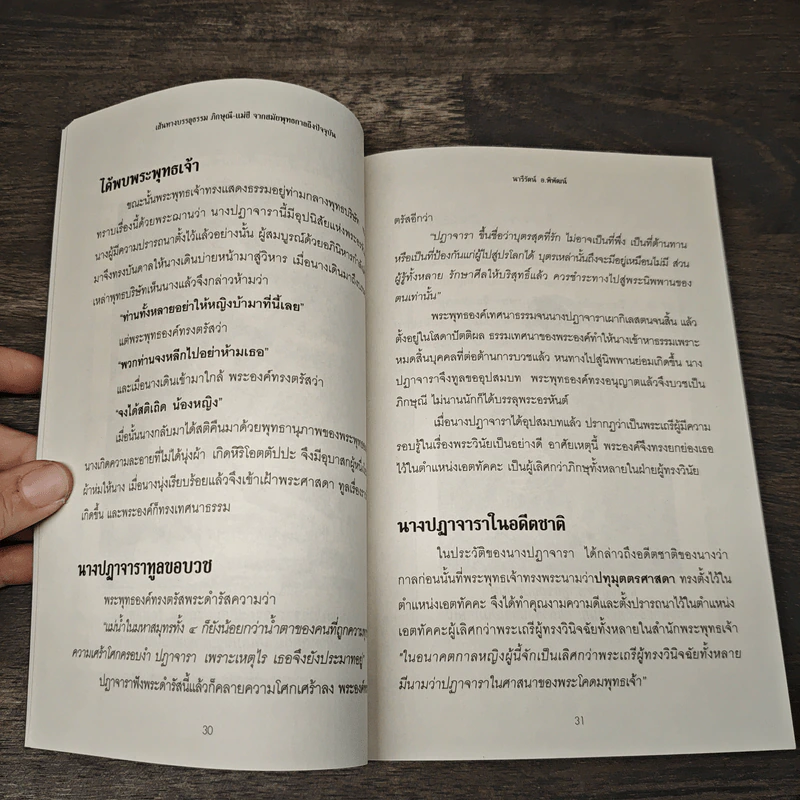 เส้นทางบรรลุธรรม ภิกษุณี-แม่ชี จากสมัยพุทธกาลถึงปัจจุบัน
ได้พบพระพุทธเจ้า
ขณะนั้นพระพุทธเจ้าทรงแสดงธรรมอยู่ท่ามกลางพุทธบริษัท
ทราบเรื่องนี้ด้วยพระฌานว่า นางปฏาจารานี้มีอุปนิสัยแห่งพระ
นางผู้มีความปรารถนาตั้งไว้แล้วอย่างนั้น ผู้สมบูรณ์ด้วยอภินิหาร
มาจึงทรงบันดาลให้นางเดินบ่ายหน้ามาสู่วิหาร เมื่อนางเดินมาถึง
เหล่าพุทธบริษัทเห็นนางแล้วจึงกล่าวห้ามว่า
"ท่านทั้งหลายอย่าให้หญิงบ้ามาที่นี้เลย"
แต่พระพุทธองค์ทรงตรัสว่า
"พวกท่านจงหลีกไปอย่าห้ามเธอ"
และเมื่อนางเดินเข้ามาใกล้ พระองค์ทรงตรัสว่า
"จงได้สติเถิด น้องหญิง"
เมื่อนั้นนางกลับมาได้สติคืนมาด้วยพุทธานุภาพของพระพุทธ
นางเกิดความละอายที่ไม่ได้นุ่งผ้า เกิดหิริโอตตัปปะ จึงมีอุบาสกผู้หนึ่ง
ผ้าห่มให้นาง เมื่อนางนุ่งเรียบร้อยแล้วจึงเข้าเฝ้าพระศาสดา ทูลเรื่อง
เกิดขึ้น และพระองค์ก็ทรงเทศนาธรรม
นางปฏาจาราทูลขอบวช
พระพุทธองค์ทรงตรัสพระดำรัสความว่า
"แม่น้ำในมหาสมุทรทั้ง ๔ ก็ยังน้อยกว่าน้ำตาของคนที่ถูกความทุกข์
ความเศร้าโศกครอบงำ ปฏาจารา เพราะเหตุไร เธอจึงยังประมาทอยู่"
ปฏาจาราฟังพระดำรัสนี้แล้วก็คลายความโศกเศร้าลง พระองค์
30
นารีรัตน์ อ.พิพัฒน์
ตรัสอีกว่า
"ปฏาจารา ขึ้นชื่อว่าบุตรสุดที่รัก ไม่อาจเป็นที่พึ่ง เป็นที่ต้านทาน
หรือเป็นที่ป้องกันแก่ผู้ไปสู่ปรโลกได้ บุตรเหล่านั้นถึงจะมีอยู่เหมือนไม่มี ส่วน
ผู้รู้ทั้งหลาย รักษาศีลให้บริสุทธิ์แล้ว ควรชำระทางไปสู่พระนิพพานของ
ตนเท่านั้น"
พระพุทธองค์เทศนาธรรมจนนางปฏาจาราเผากิเลสตนจนสิ้น แล้ว
ตั้งอยู่ในโสดาปัตติผล ธรรมเทศนาของพระองค์ทำให้นางเข้าหาธรรมเพราะ
หมดสิ้นบุคคลที่ต่อต้านการบวชแล้ว หนทางไปสู่นิพพานย่อมเกิดขึ้น นาง
ปฏาจาราจึงทูลขออุปสมบท พระพุทธองค์ทรงอนุญาตแล้วจึงบวชเป็น
ภิกษุณี ไม่นานนักก็ได้บรรลุพระอรหันต์
เมื่อนางปฏาจาราได้อุปสมบทแล้ว ปรากฏว่าเป็นพระเถรีผู้มีความ
รอบรู้ในเรื่องพระวินัยเป็นอย่างดี อาศัยเหตุนี้ พระองค์จึงทรงยกย่องเธอ
ไว้ในตำแหน่งเอตทัคคะ เป็นผู้เลิศกว่าภิกษุทั้งหลายในฝ่ายผู้ทรงวินัย
นางปฏาจาราในอดีตชาติ
ในประวัติของนางปฏาจารา ได้กล่าวถึงอดีตชาติของนางว่า
กาลก่อนนั้นที่พระพุทธเจ้าทรงพระนามว่าปทุมุตตรศาสดา ทรงตั้งไว้ใน
ตำแหน่งเอตทัคคะ จึงได้ทำคุณงามความดีและตั้งปรารถนาไว้ในตำแหน่ง
เอตทัคคะผู้เลิศกว่าพระเถรีผู้ทรงวินิจฉัยทั้งหลายในสำนักพระพุทธเจ้า
"ในอนาคตกาลหญิงผู้นี้จักเป็นเลิศกว่าพระเถรีผู้ทรงวินิจฉัยทั้งหลาย
มีนามว่าปฏาจาราในศาสนาของพระโคดมพุทธเจ้า"
31